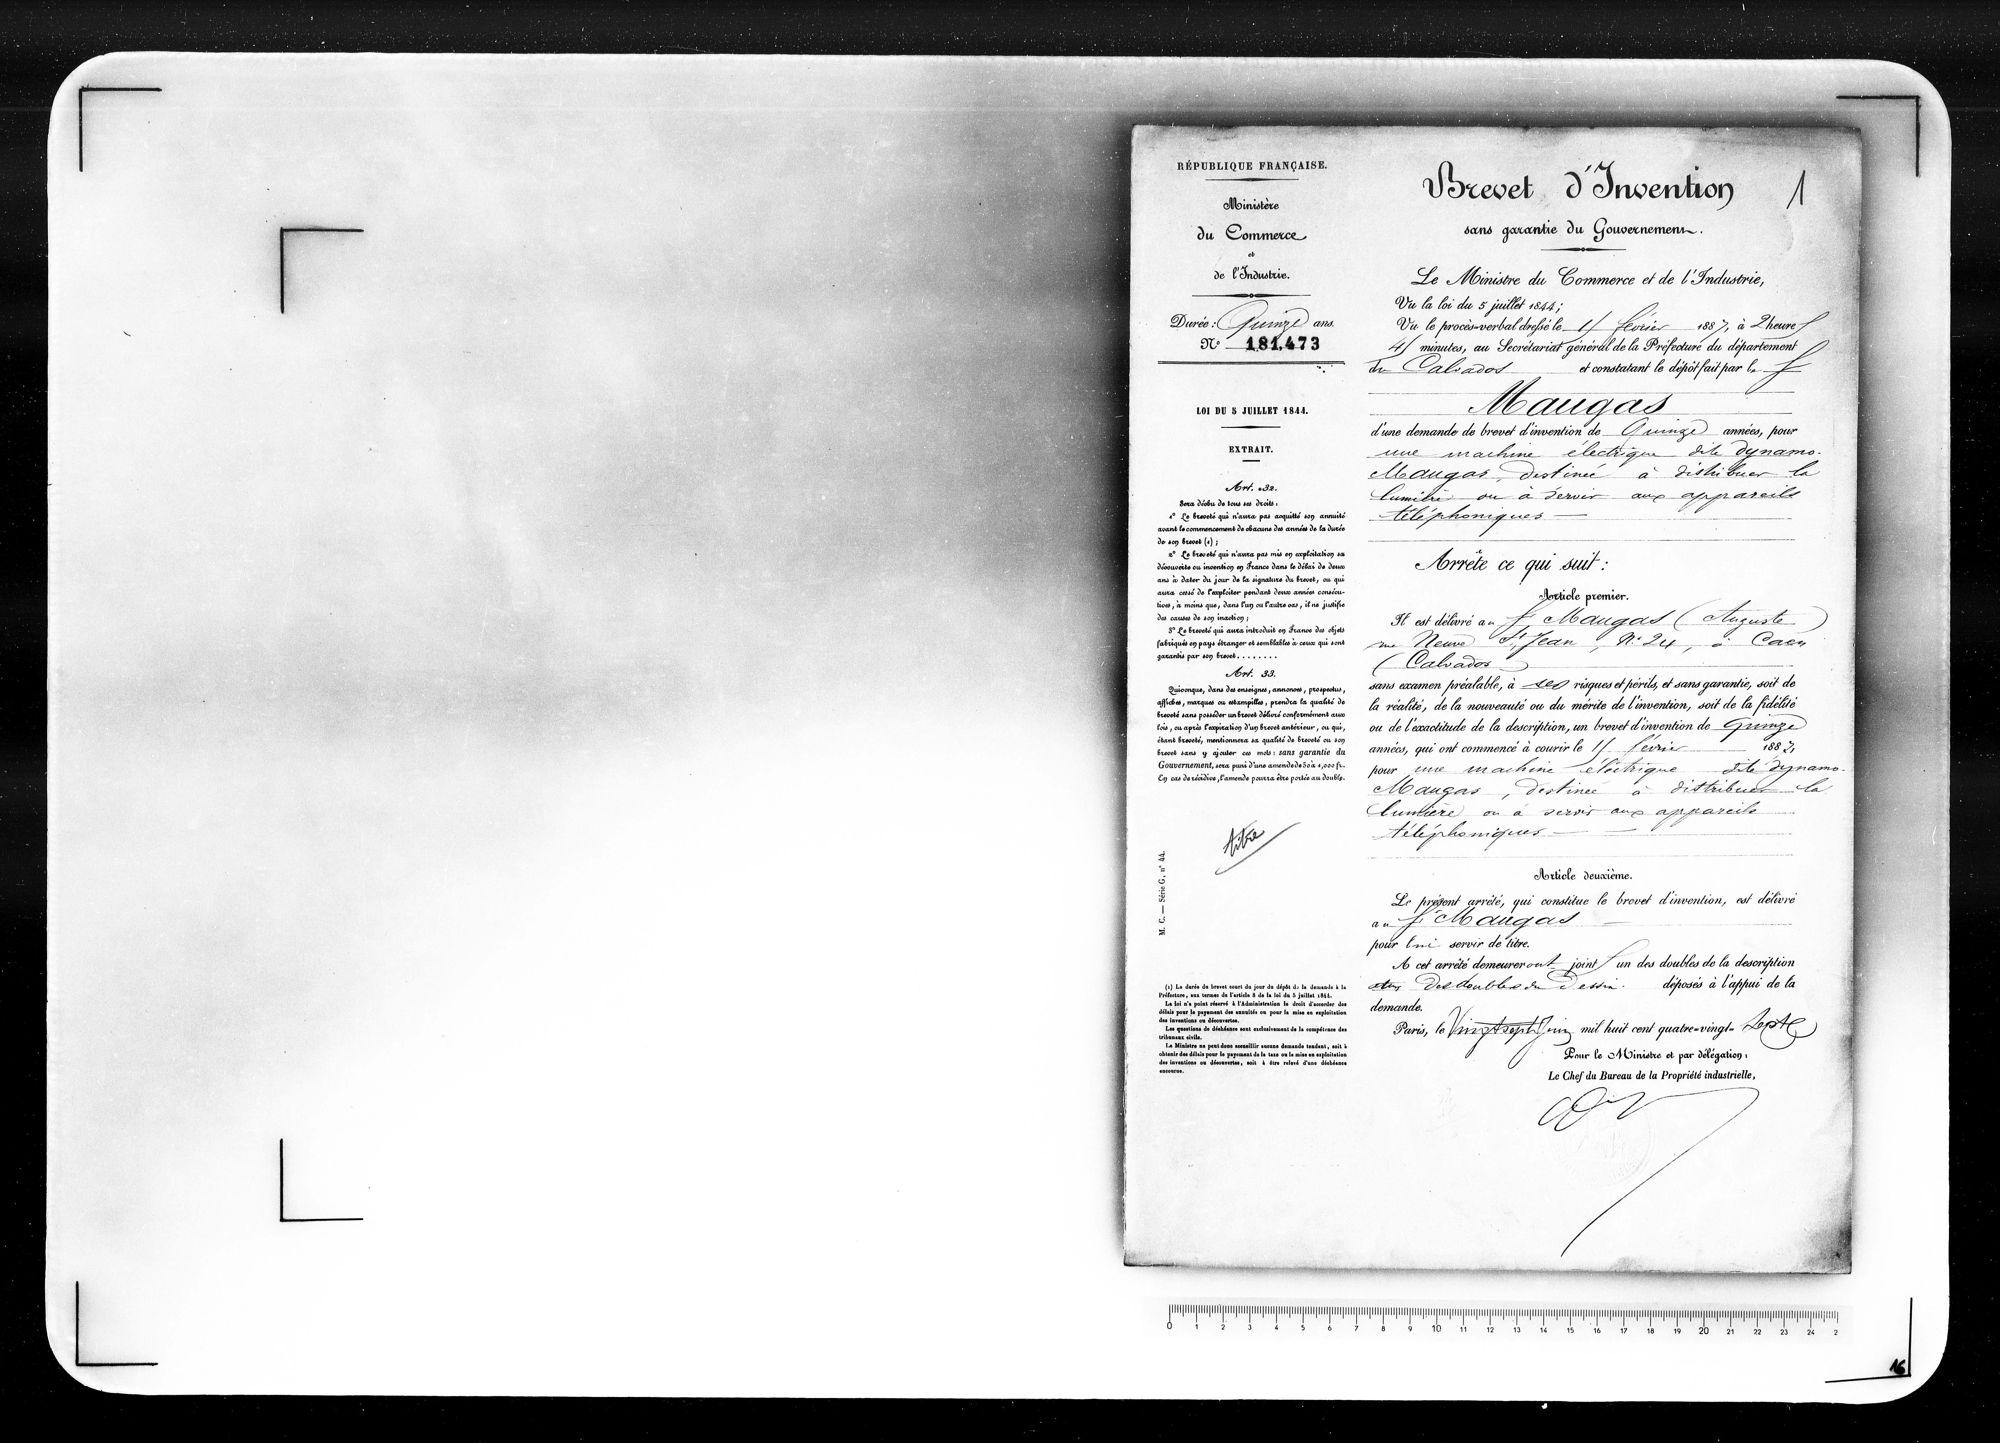 RÉPUBLIQUE FRANÇAISE.
Ministère
du Commerce
et
de l'Industrie.
Durée : Quinze ans.
N° 181,473
LOI DU 5 JUILLET 1844.
EXTRAIT.
Art. 32.
Sera déchu de tous ses droits :
1° Le breveté qui n'aura pas acquitté son annuité
avant le commencement de chacune des années de la durée
de son brevet (1) ;
2° Le breveté qui n'aura pas mis en exploitation sa
découverte ou invention en France dans le délai de deux
ans à dater du jour de la signature du brevet, ou qui
aura cessé de l'exploiter pendant deux années consécu-
tives, à moins que, dans l'un ou l'autre cas, il ne justifie
des causes de son inaction ;
3° Le breveté qui aura introduit en France des objets
fabriqués en pays étranger et semblables à ceux qui sont
garantis par son brevet........
Art. 33.
Quiconque, dans des enseignes, annonces, prospectus,
affiches, marques ou estampilles, prendra la qualité de
breveté sans posséder un brevet délivré conformément aux
lois, ou après l'expiration d'un brevet antérieur, ou qui,
étant breveté, mentionnera sa qualité de breveté ou son
brevet sans y ajouter ces mots : sans garantie du
Gouvernement, sera puni d'une amende de 50 à 1,000 fr.
En cas de récidive, l'amende pourra être portée au double.
titre
M. C. — Série G, n° 44.
(1) La durée du brevet court du jour du dépôt de la demande à la
Préfecture, aux termes de l'article 8 de la loi du 5 juillet 1844.
La loi n'a point réservé à l'Administration le droit d'accorder des
délais pour le payement des annuités ou pour la mise en exploitation
des inventions ou découvertes.
Les questions de déchéance sont exclusivement de la compétence des
tribunaux civils.
Le Ministre ne peut donc accueillir aucune demande tendant, soit à
obtenir des délais pour le payement de la taxe ou la mise en exploitation
des inventions ou découvertes, soit à être relevé d'une déchéance
encourue.
Brevet d'Invention
1
sans garantie du Gouvernement.
Le Ministre du Commerce et de l'Industrie,
Vu la loi du 5 juillet 1844 ;
Vu le procès-verbal dressé le février 1887, à 2 heures
minutes, au Secrétariat général de la Préfecture du département
du Calvados et constatant le dépôt fait par le S
Maugas
d'une demande de brevet d'invention de Quinze années, pour
une machine électrique dite dynamo-
Maugas, destinée à distribuer la
lumière ou à servir aux appareils
téléphoniques —
Arrête ce qui suit :
Article premier.
Il est délivré au Sr Maugas (Auguste)
rue Neuve St Jean, N° 24, à Caen
(Calvados)
sans examen préalable, à ses risques et périls, et sans garantie, soit de
la réalité, de la nouveauté ou du mérite de l'invention, soit de la fidélité
ou de l'exactitude de la description, un brevet d'invention de Quinze
années, qui ont commencé à courir le février 1887,
pour une machine électrique dite dynamo-
Maugas, destinée à distribuer la
lumière ou à servir aux appareils
téléphoniques — —
Article deuxième.
Le présent arrêté, qui constitue le brevet d'invention, est délivré
au Sr Maugas —
pour lui servir de titre.
A cet arrêté demeureront joints un des doubles de la description
des doubles du dessin. déposés à l'appui de la
demande.
Paris, le Vingt sept Juin mil huit cent quatre-vingt- Sept
Pour le Ministre et par délégation :
Le Chef du Bureau de la Propriété industrielle,
0 1 2 3 4 5 6 7 8 9 10 11 12 13 14 15 16 17 18 19 20 21 22 23 24 2
16